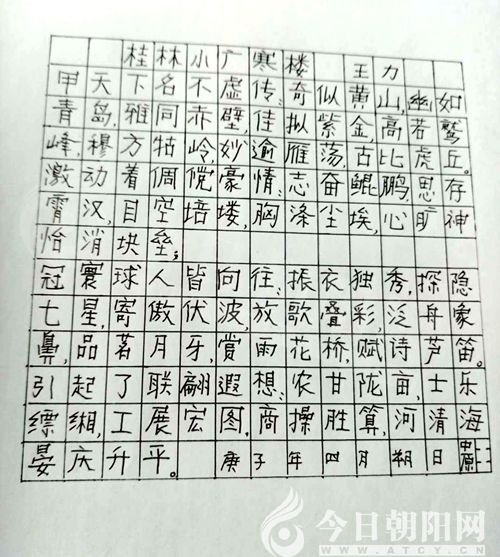 桂林小广寒楼 王力
甲天下名不虚传；奇似黄山，幽如
青岛，雅同赤壁，佳拟紫金，高若鹫
峰，穆方牯岭，妙逾雁荡，古比虎丘。
激动着倜傥豪情：志奋鲲鹏，思存
霄汉，目空培塿，胸涤尘埃，心旷神
怡消块垒；
冠寰球人皆向往：振衣独秀，探隐
七星，寄傲伏波，放歌叠彩，泛舟象
鼻，品茗月牙，赏雨花桥，赋诗芦笛。
引起了联翩遐想：农甘陇亩，士乐
缥缃，工展宏图，商操胜算，河清海
晏庆升平。 庚子年四月朔日 中原
今日朝阳网
WWW.ATCY.CN